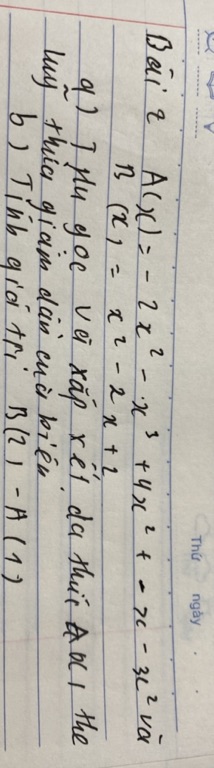 Thứ ngày
Bài 2 A(x) = - 2x² - x³ + 4x² + - x - 3x² và
B (x) = x² - 2x + 2
a) Thu gọc và xắp xếi đa thức A(x) the
luỹ thừa giảm dần của biến
b) Tính giá trị B(2) - A(1)